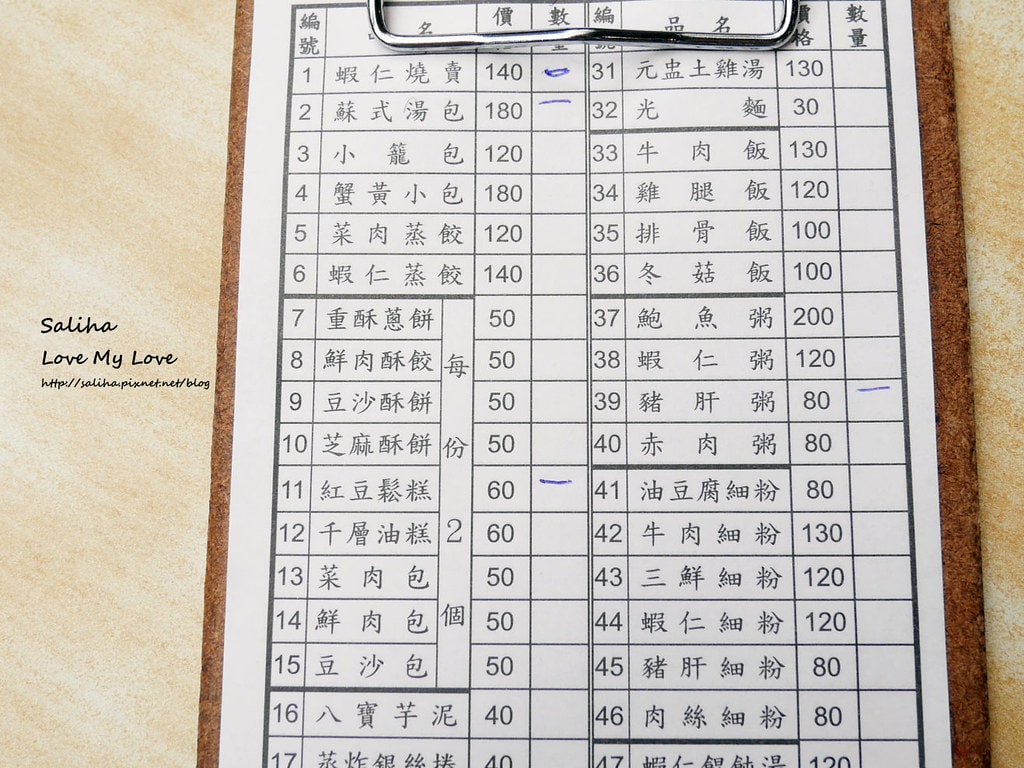 編號 品名 價 數
1 蝦仁燒賣 140
2 蘇式湯包 180
3 小籠包 120
4 蟹黃小包 180
5 菜肉蒸餃 120
6 蝦仁蒸餃 140
7 重酥蔥餅 50
8 鮮肉酥餃 50
9 豆沙酥餅 50
10 芝麻酥餅 50
11 紅豆鬆糕 60
12 千層油糕 60
13 菜肉包 50
14 鮮肉包 50
15 豆沙包 50
每份2個
16 八寶芋泥 40
17 蒸炸銀絲捲 40
編號 品名 價格 數量
31 元盅土雞湯 130
32 光麵 30
33 牛肉飯 130
34 雞腿飯 120
35 排骨飯 100
36 冬菇飯 100
37 鮑魚粥 200
38 蝦仁粥 120
39 豬肝粥 80
40 赤肉粥 80
41 油豆腐細粉 80
42 牛肉細粉 130
43 三鮮細粉 120
44 蝦仁細粉 120
45 豬肝細粉 80
46 肉絲細粉 80
47 蝦仁餛飩湯 120
Saliha
Love My Love
http://saliha.pixnet.net/blog